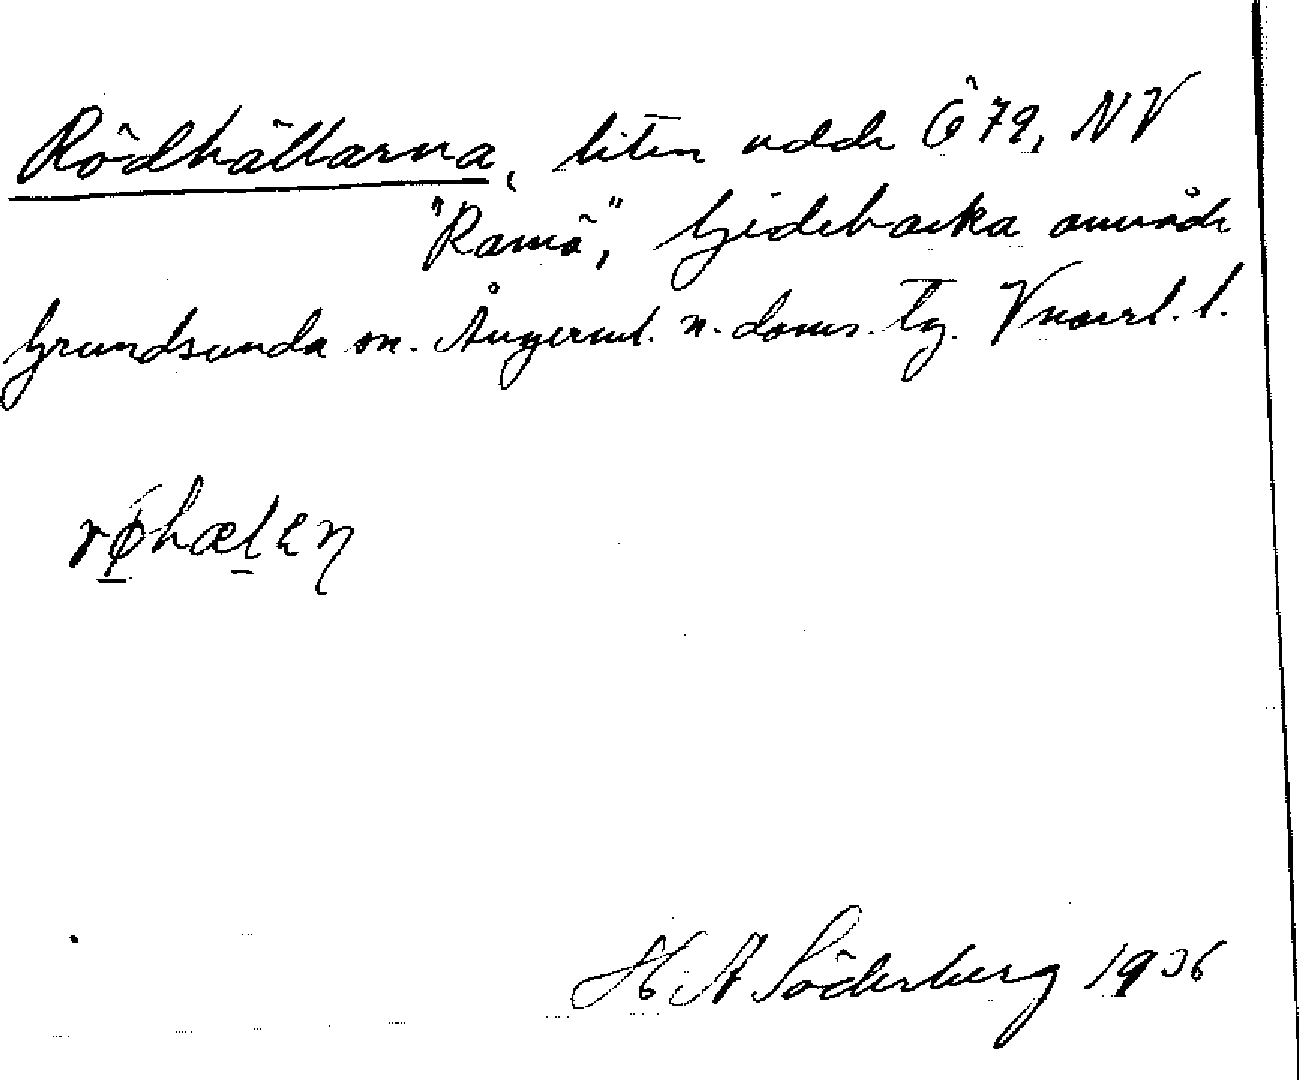 Rödhällarna, liten udde Ö 72, NV
"Ramö", Gidebacka område
Grundsunda sn. Ångerml. n. doms. tg. Vnorrl. l.
røhælen
H. A. Söderberg 1936